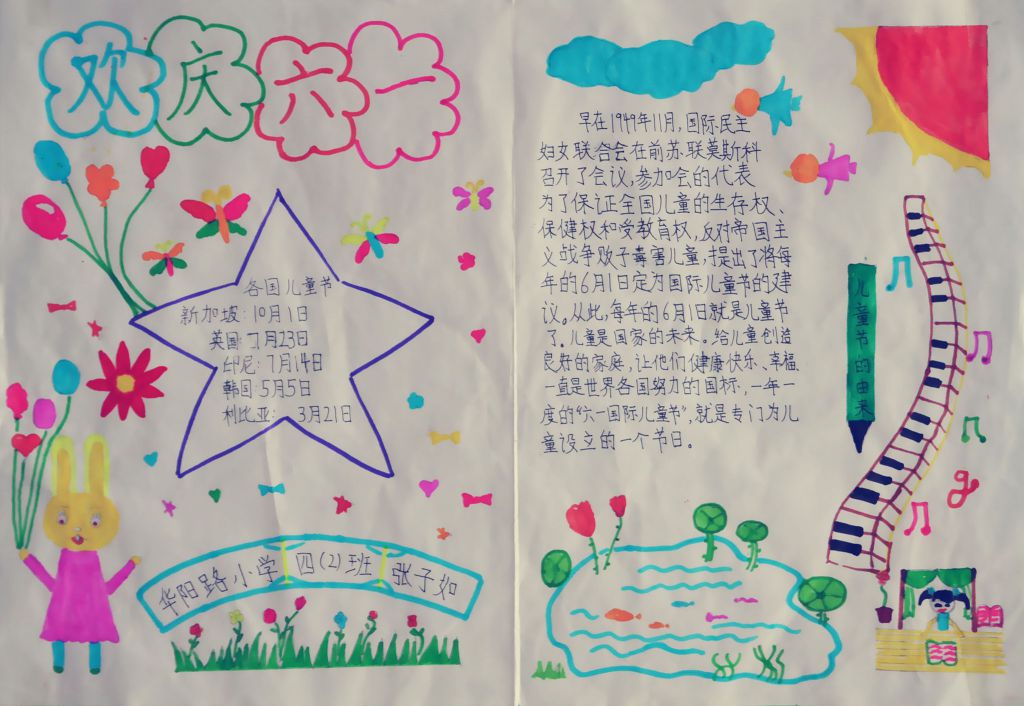 欢庆六一
各国儿童节
新加坡：10月1日
英国：7月23日
印尼：7月14日
韩国：5月5日
利比亚： 3月21日
华阳路小学 四(2)班 张子如
早在1949年11月，国际民主
妇女联合会在前苏联莫斯科
召开了会议，参加会的代表
为了保证全国儿童的生存权、
保健权和受教育权，反对帝国主
义战争贩子毒害儿童，提出了将每
年的6月1日定为国际儿童节的建
议。从此，每年的6月1日就是儿童节
了。儿童是国家的未来。给儿童创造
良好的家庭，让他们健康、快乐、幸福、
一直是世界各国努力的国标，一年一
度的“六一国际儿童节”，就是专门为儿
童设立的一个节日。
儿童节的由来